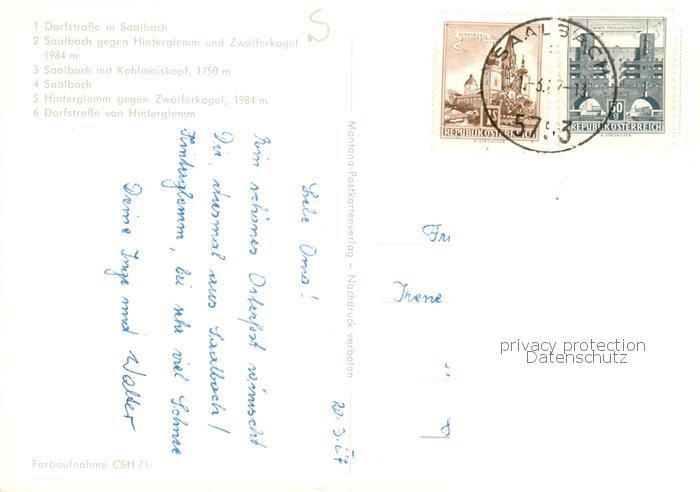 1 Dorfstraße in Saalbach
2 Saalbach gegen Hinterglemm und Zwölferkogel
1984 m
3 Saalbach mit Kohlmaiskopf, 1750 m
4 Saalbach
5 Hinterglemm gegen Zwölferkogel, 1984 m
6 Dorfstraße von Hinterglemm
Farbaufnahme CSH 71
Montana-Postkartenverlag – Nachdruck verboten
20.3.67
Liebe Oma!
Ein schönes Osterfest wünscht
Dir, diesmal aus Saalbach/
Hinterglemm, bei sehr viel Schnee
Deine Inge und Walter
MARIAZELL
REPUBLIK ÖSTERREICH
50
REPUBLIK ÖSTERREICH
SAALBACH
5753
Fr
Irene
privacy protection
Datenschutz